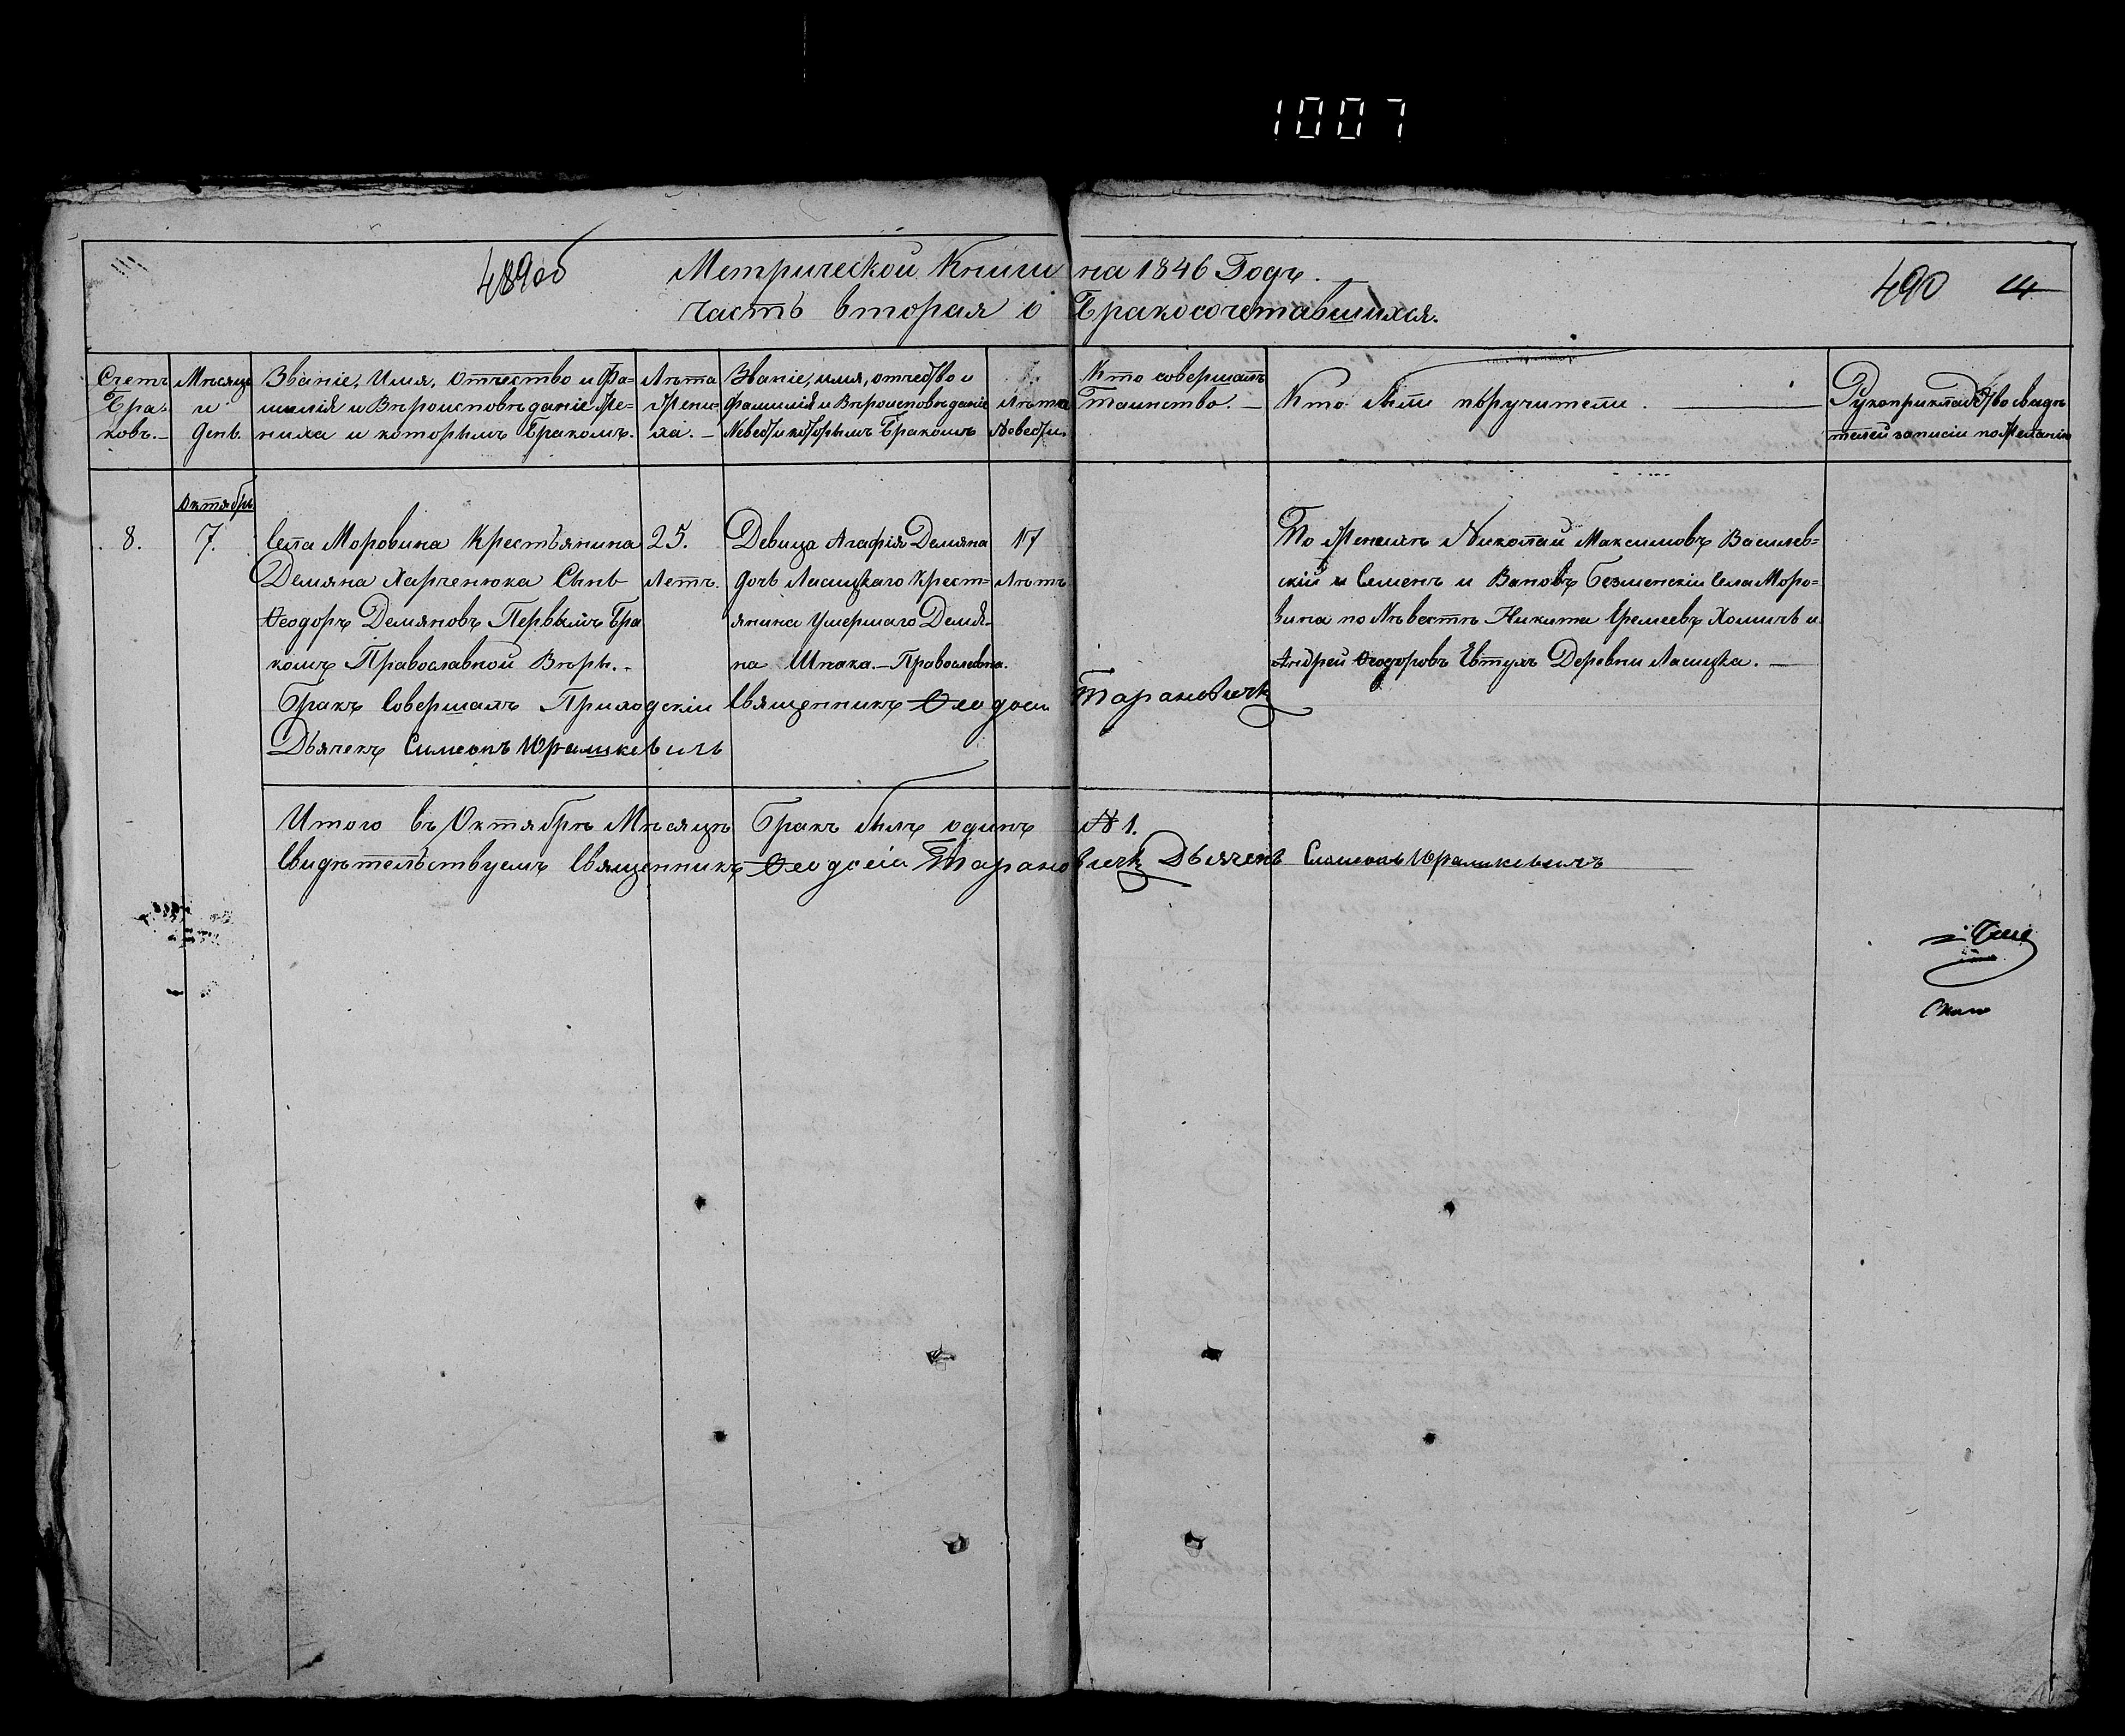 1007
489об Метрической Книги на 1846 Годъ. 490 14
часть вторая о Бракосочетавшихся.
Счетъ Бра-ковъ.
Мѣсяцъ и день.
Званіе, Имя, Отчество и Фа=
милія и Вѣроисповѣданіе Же=
ниха и которымъ Бракомъ.
Лѣта
Жени=
ха.
Званіе, имя, отчество и
фамилія и Вѣроисповѣданіе
Невесты которымъ Бракомъ
Лѣта
Невесты.
Кто совершалъ
Таинство.
Кто были поручители.
Рукоприкладство свидѣ
телей записи по желанію
Октябрь
8. 7.
Села Моровина Крестьянина
Демяна Харченюка Сынъ
Ѳеодоръ Демяновъ Первымъ Бра
комъ Православной Вѣры.
25.
Летъ.
Девица Агафія Демяна
дочь Ласицкаго Крест=
янина умершаго Демя=
на Шпака. Православна.
17
Лѣтъ
По Женихѣ Николай Максимовъ Василев=
скій и Семенъ Ивановъ Безменскій Села Моро=
вина по Невестѣ Никита Еремеевъ Хомичъ и
Андрей Ѳеодоровъ Евтухъ Деревни Ласицка.
Бракъ Совершалъ Приходскій Священникъ Ѳеодосій Тарановичъ
Дьячекъ Симеонъ Юрашкевичъ
Итого въ Октябрѣ Мѣсяцѣ Бракъ былъ одинъ № 1.
Свидѣтельствуемъ Священникъ Ѳеодосій Тарановичъ Дьячекъ Симеонъ Юрашкевичъ